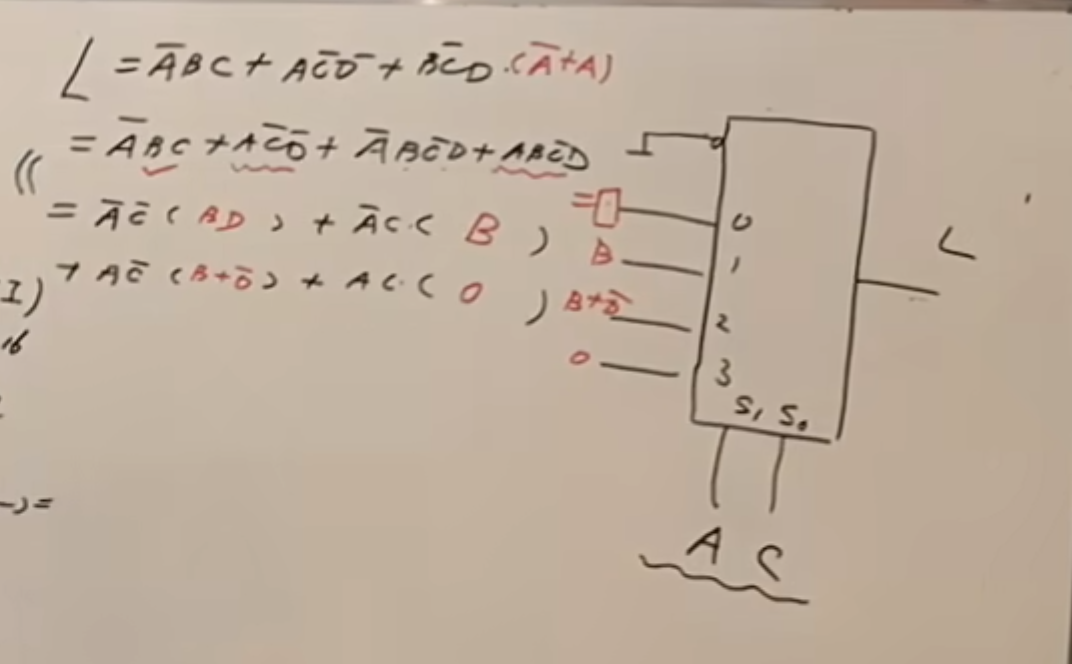 L = A̅BC + AC̅D̅ + BC̅D·(A̅+A)
= A̅BC + AC̅D̅ + A̅BC̅D + ABC̅D
= A̅C̅( BD ) + A̅C·( B )
+ AC̅ (B+D̅) + AC·( 0 )
I)
16
-)=
=
0
B
1
B+D̅
2
0
3
S₁ S₀
A C
L